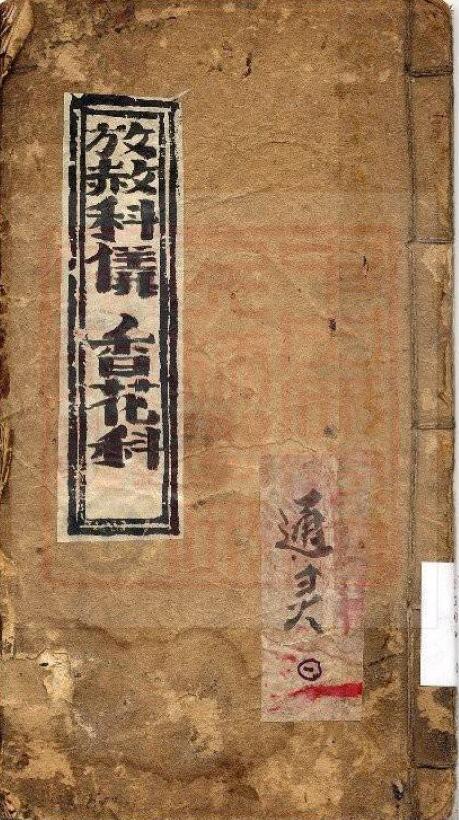 放赦科儀 香花科
通灵
㊀